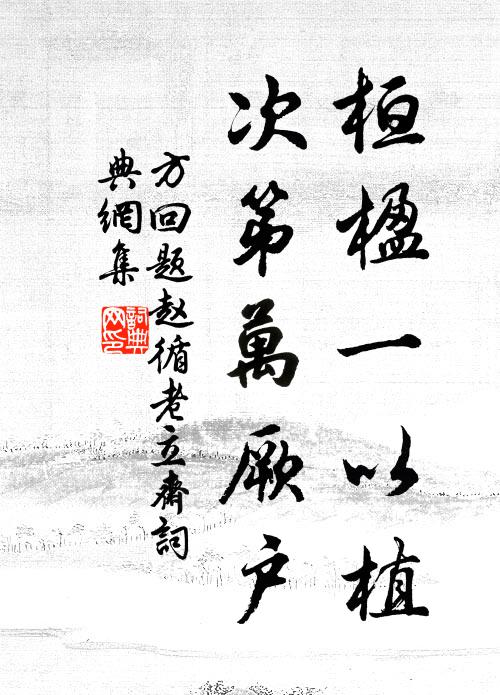 桓楹一以植
次第萬厥户
方回题赵循老立齋詞
典網集
詞典
网印